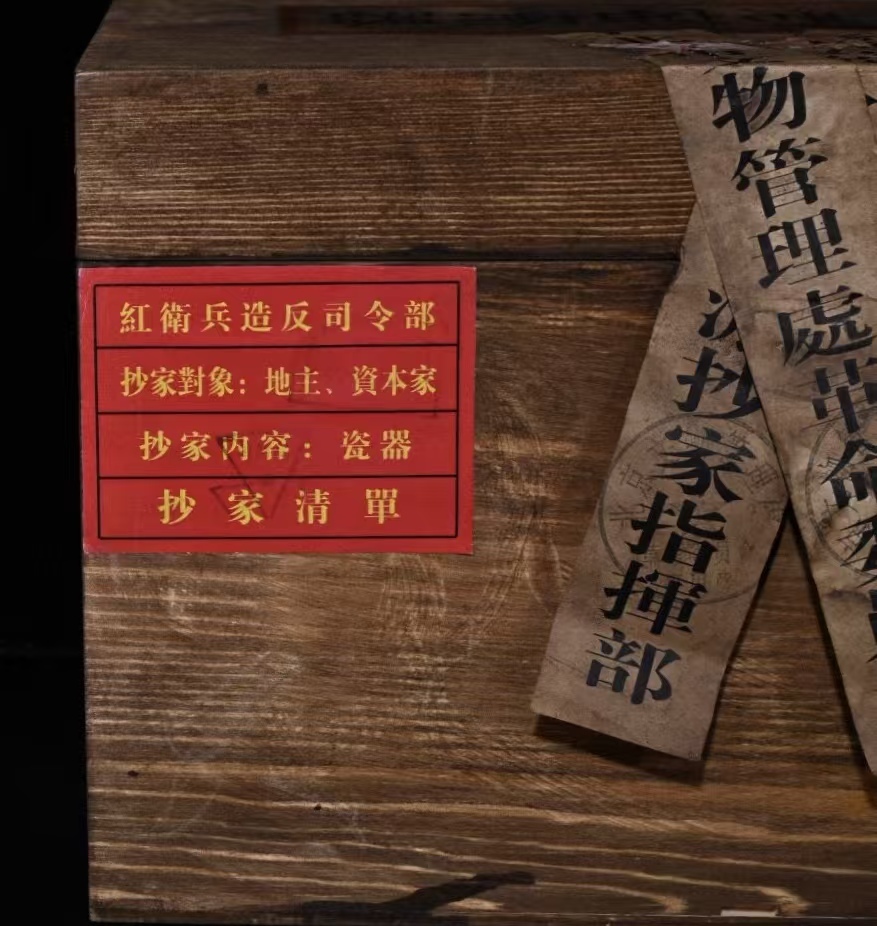 紅衛兵造反司令部
抄家對象：地主、資本家
抄家内容：瓷器
抄家清單
物管理處革命委員
抄家指揮部